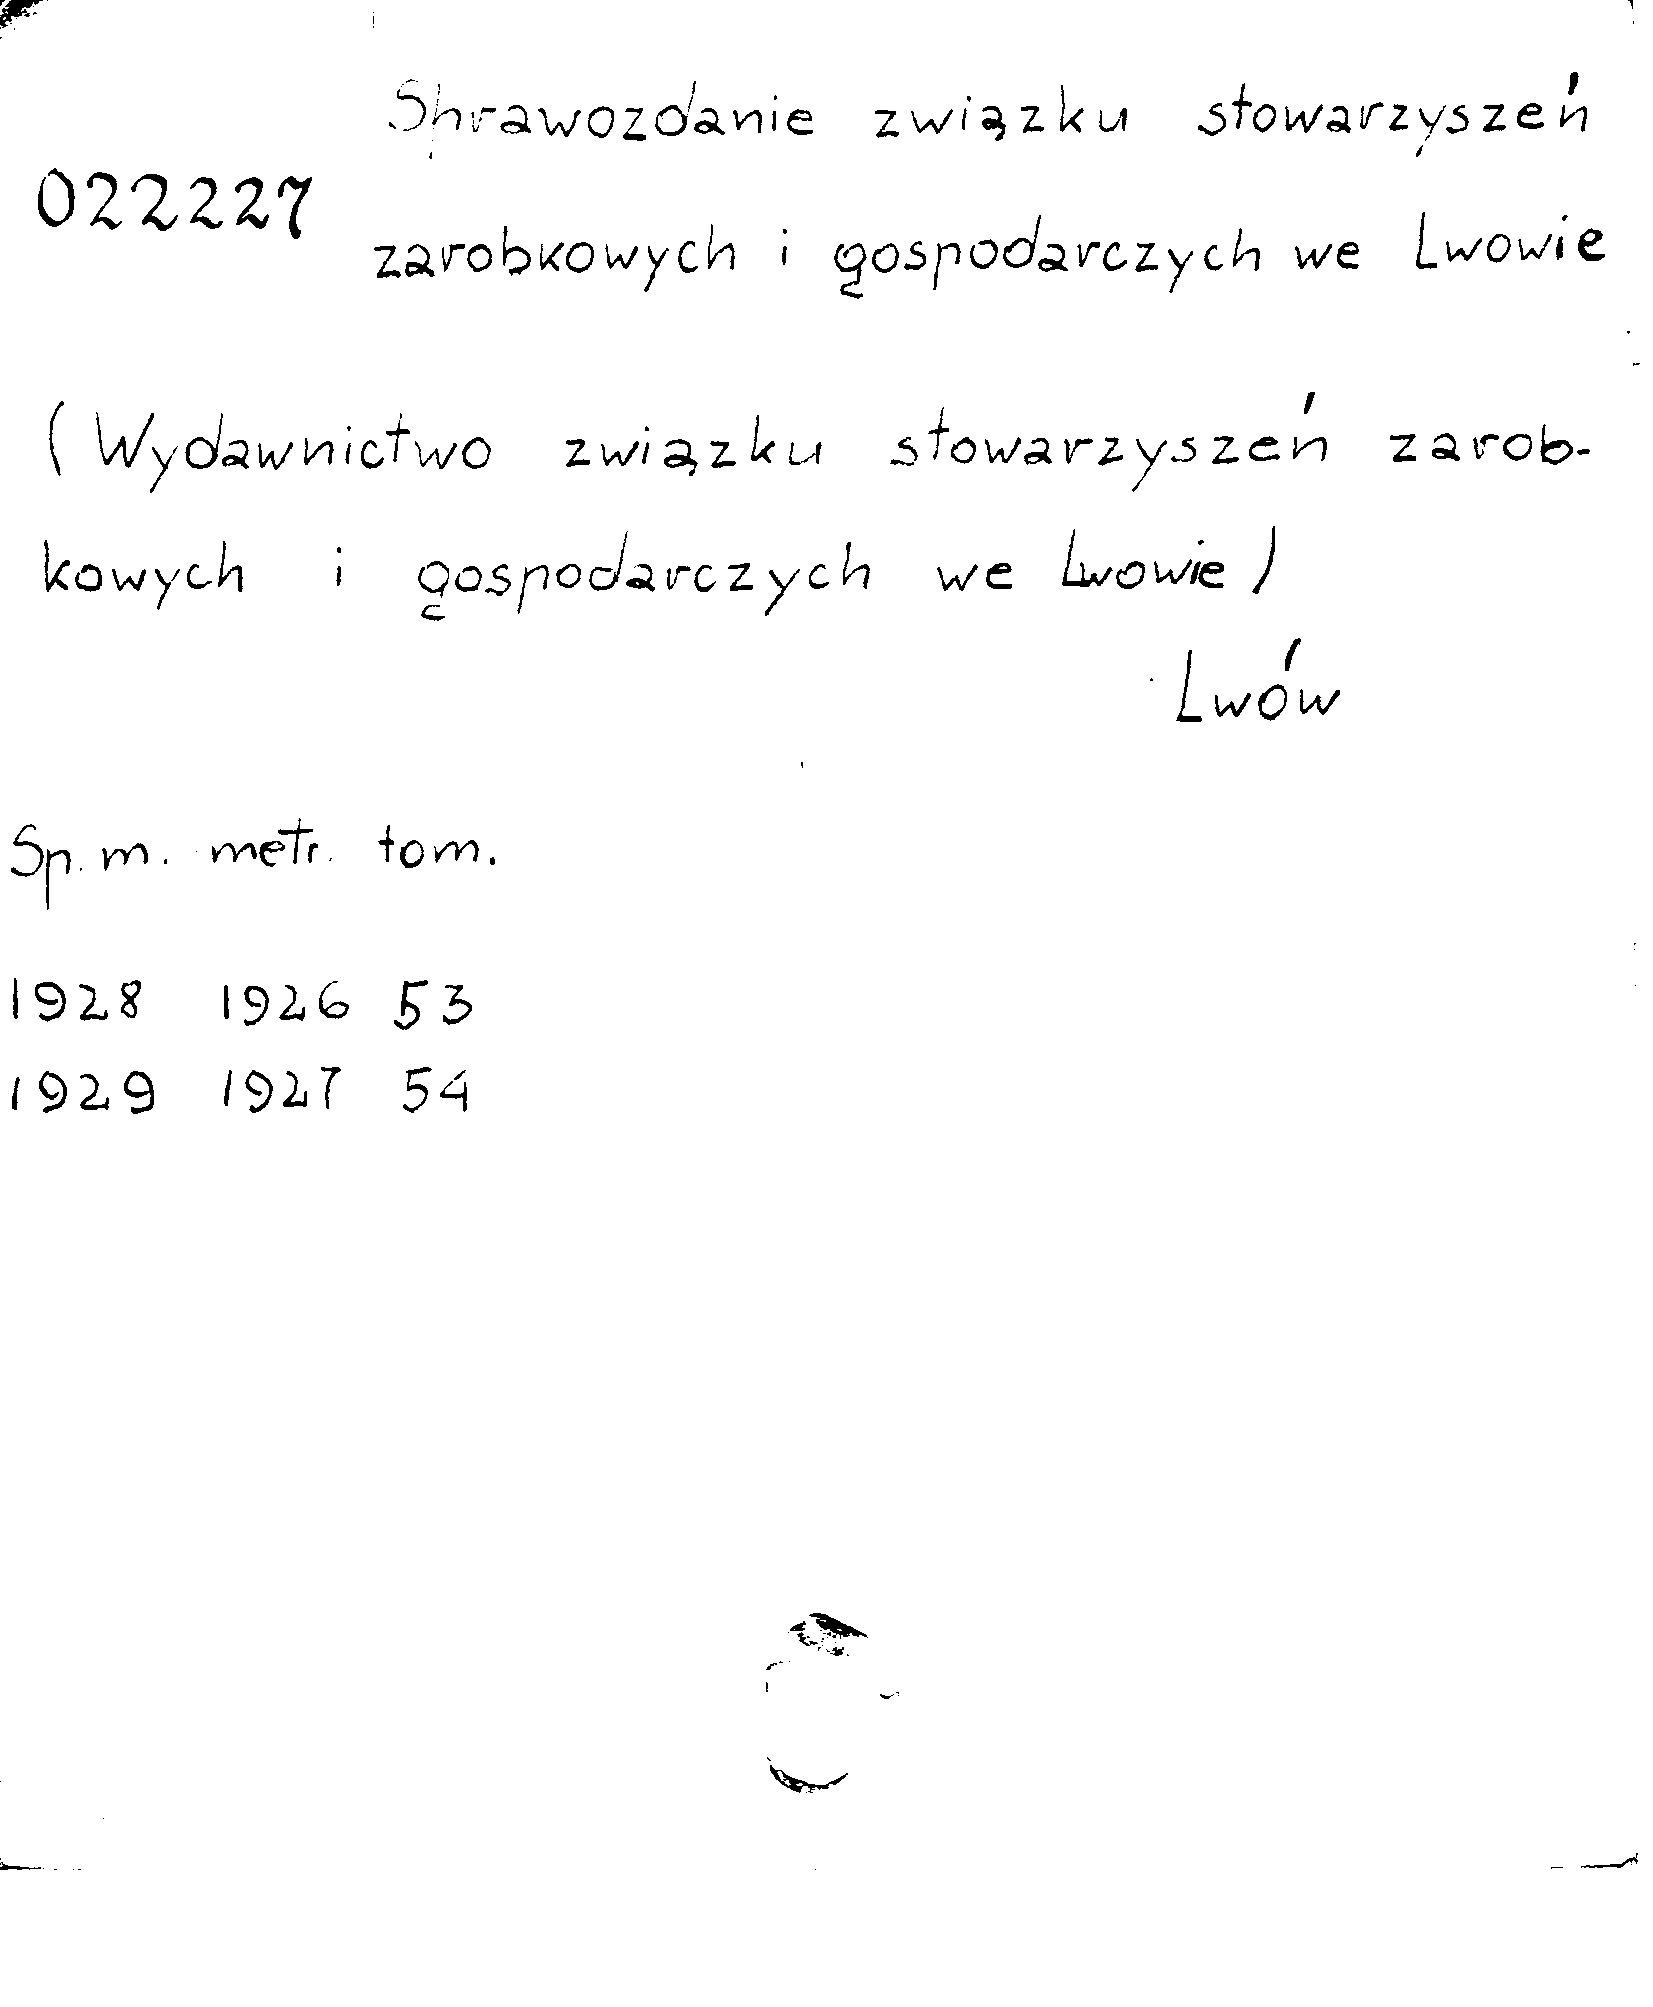 Sprawozdanie związku stowarzyszeń
022227
zarobkowych i gospodarczych we Lwowie
(Wydawnictwo związku stowarzyszeń zarob-
kowych i gospodarczych we Lwowie)
Lwów
Sp. m. metr. tom.
1928 1926 53
1929 1927 54